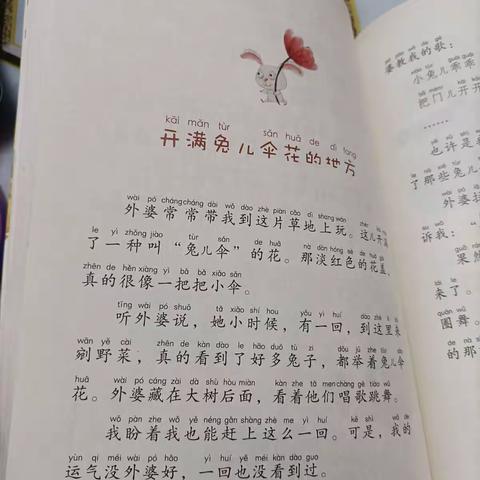 kāi mǎn tùr sǎn huā de dì fang
开满兔儿伞花的地方
wài pó chángcháng dài wǒ dào zhè piàn cǎo dì shang wán
外婆常常带我到这片草地上玩。这儿开满
le yì zhǒng jiào tùr sǎn de huā nà dàn hóng sè de huā gài
了一种叫“兔儿伞”的花。那淡红色的花盖,
zhēn de hěn xiàng yì bǎ bǎ xiǎo sǎn
真的很像一把把小伞。
tīng wài pó shuō tā xiǎo shí hou yǒu yì huí dào zhè lǐ lái
听外婆说,她小时候,有一回,到这里来
wān yě cài zhēn de kàn dào le hǎo duō tù zi dōu jǔ zhe tùr sǎn
剜野菜,真的看到了好多兔子,都举着兔儿伞
huā wài pó cáng zài dà shù hòu miàn kàn zhe tā men chàng gē tiào wǔ
花。外婆藏在大树后面,看着他们唱歌跳舞。
wǒ pàn zhe wǒ yě néng gǎn shàng zhè me yì huí kě shì wǒ de
我盼着我也能赶上这么一回。可是,我的
yùn qi méi wài pó hǎo yì huí yě méi kàn dào guo
运气没外婆好,一回也没看到过。
婆教我的歌:
小兔儿乖乖
把门儿开开
……
也许是我
了那些兔儿
外婆
诉我:
果然
来了。
圈舞。
的那